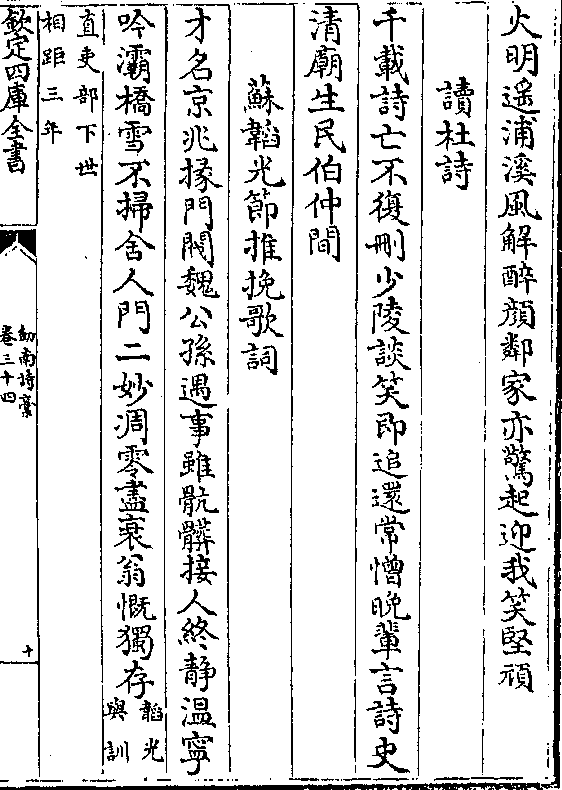 火明遥浦溪風解醉顔鄰家亦驚起迎我笑堅頑
讀杜詩
千載詩亡不復刪少陵談笑即追還常憎晚輩言詩史
清廟生民伯仲間
蘇韜光節推挽歌詞
才名京兆掾門閥魏公孫遇事雖骯髒接人終静温寧
吟灞橋雪不掃舍人門二妙凋零盡衰翁慨獨存韜光
與訓
直吏部下世
相距三年
欽定四庫全書
劒南詩稾
卷三十四
十